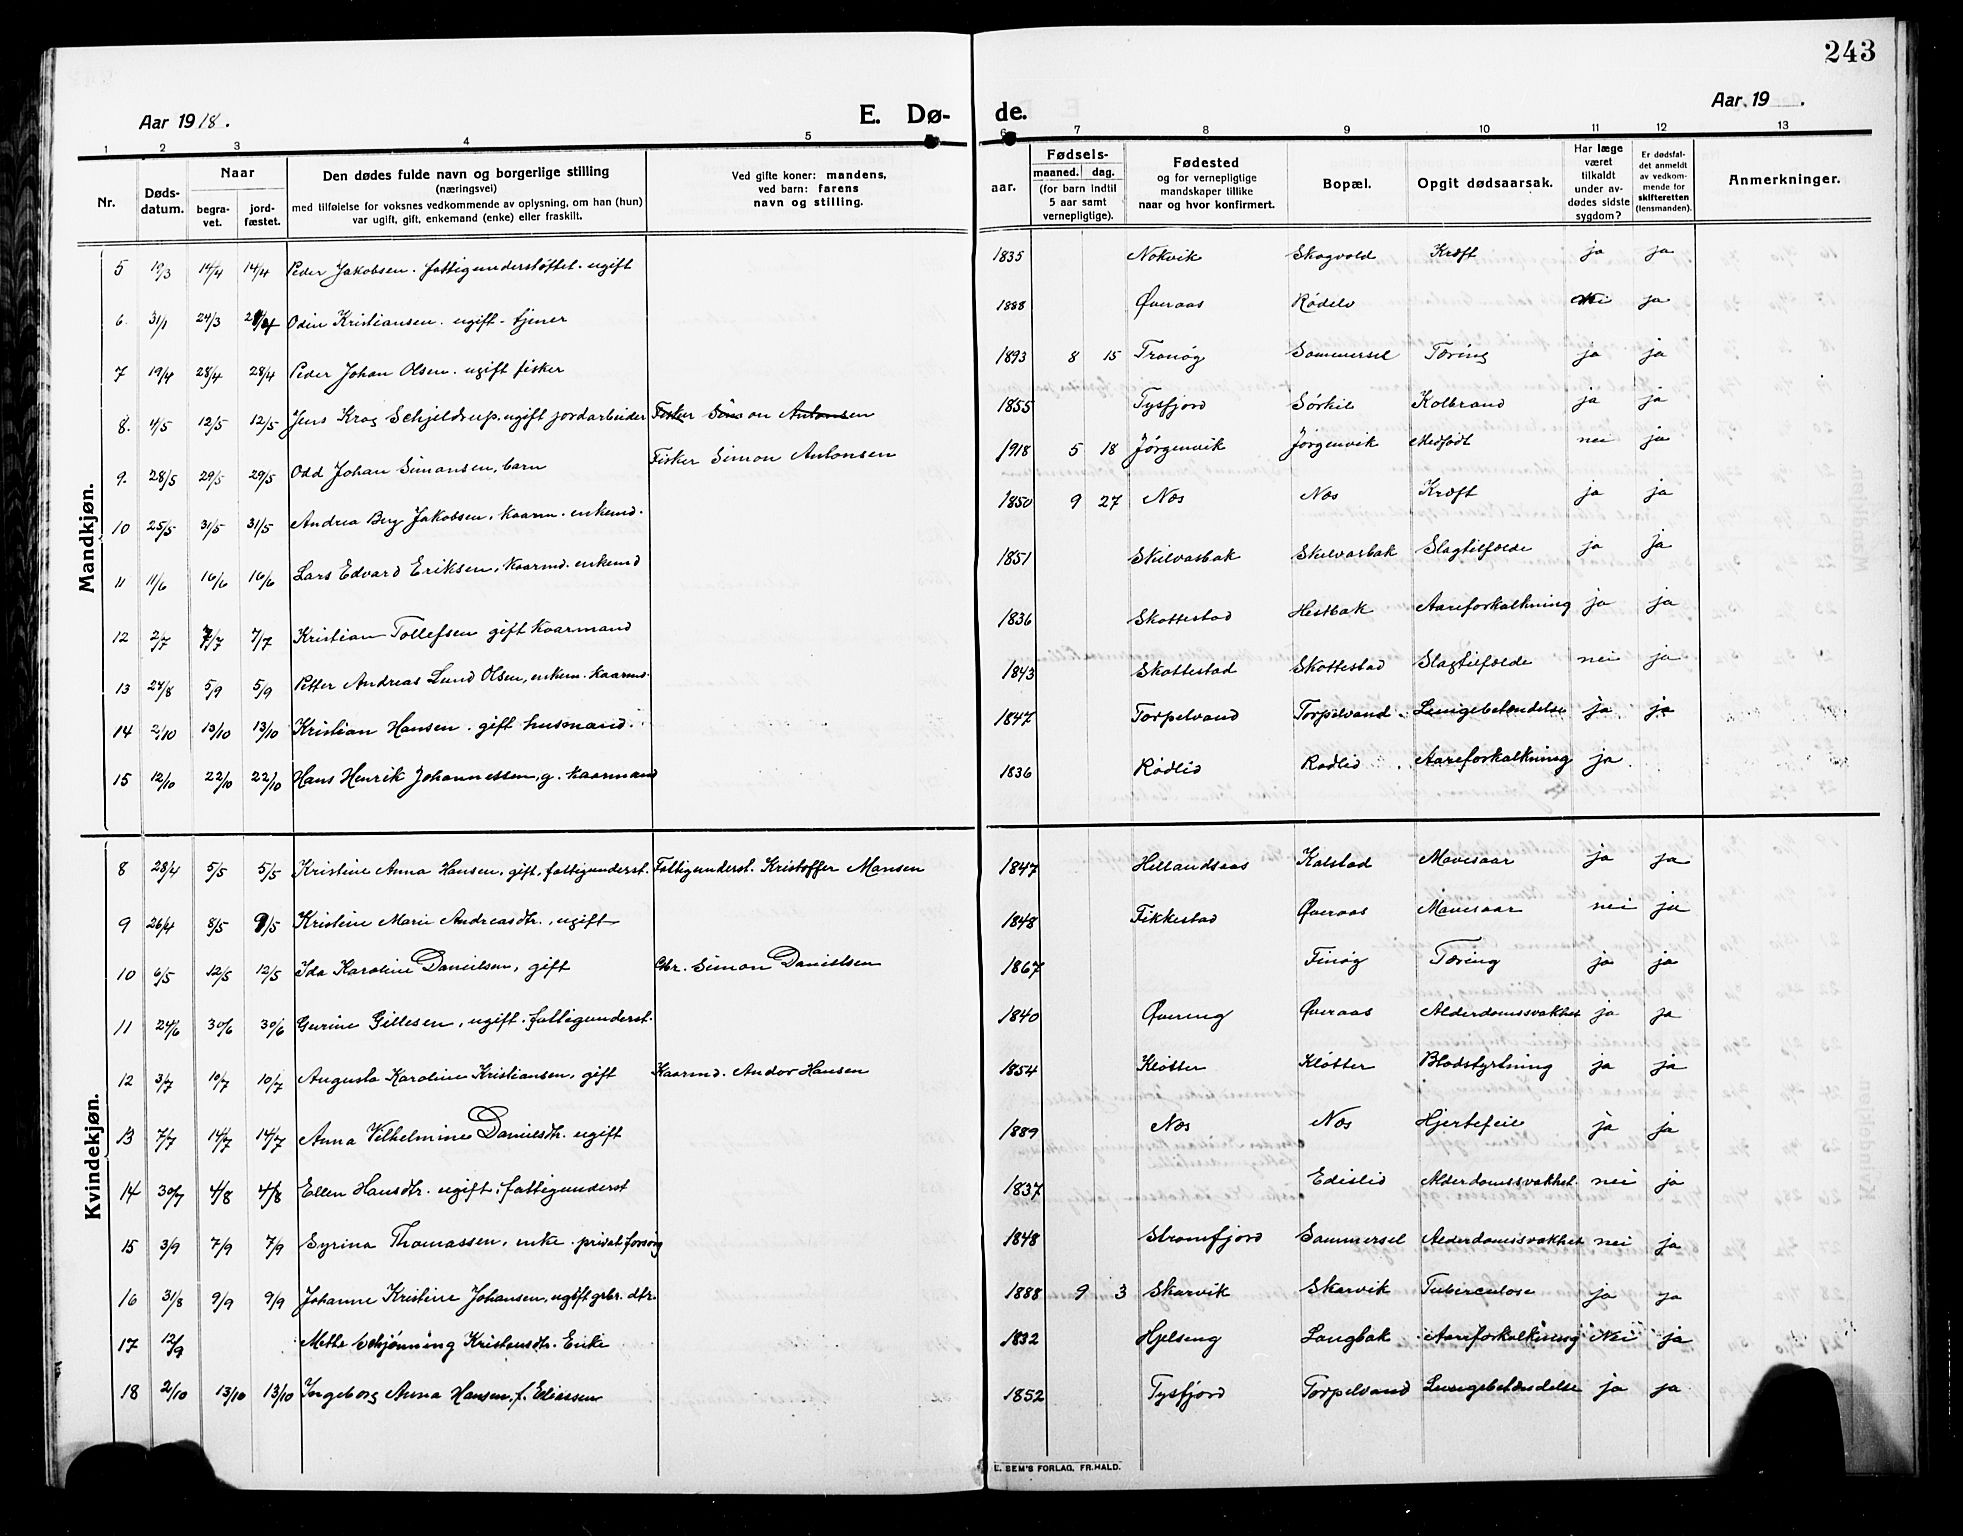 243
Aar 1918.
E. Dø-
de.
Aar 19 .
1 2 3 4 5 6 7 8 9 10 11 12 13
Nr.
Døds-
datum.
Naar
begra-
vet.
jord-
fæstet.
Den dødes fulde navn og borgerlige stilling
(næringsvei)
med tilføielse for voksnes vedkommende av oplysning, om han (hun)
var ugift, gift, enkemand (enke) eller fraskilt.
Ved gifte koner: mandens,
ved barn: farens
navn og stilling.
aar.
Fødsels-
maaned. dag.
(for barn indtil
5 aar samt
vernepligtige).
Fødested
og for vernepligtige
mandskaper tillike
naar og hvor konfirmert.
Bopæl.
Opgit dødsaarsak.
Har læge
været
tilkaldt
under av-
dødes sidste
sygdom?
Er dødsfal-
det anmeldt
av vedkom-
mende for
skifteretten
(lensmanden).
Anmerkninger.
Mandkjøn.
5 19/3 14/4 14/4 Peder Jakobsen. fattigunderstøttet. ugift 1835 Nokvik Skogvold Kræft ja ja
6 31/1 24/3 Odin Kristiansen. ugift - tjener 1888 Øveraas Rødelv ja
7 19/4 28/4 28/4 Peder Johan Olsen. ugift fisker 1893 8 15 Tranøy Sommersel Tæring ja ja
8. 1/5 12/5 12/5 Jens Krog Schjeldrup. ugift jordarbeider Fisker Simon Antonsen 1855 Tysfjord Sørkil Kolbrand ja ja
9. 28/5 29/5 29/5 Odd Johan Simonsen, barn Fisker Simon Antonsen 1918 5 18 Jørgenvik Jørgenvik Medfødt nei ja
10 25/5 31/5 31/5 Andrea Berg Jakobsen, kaarm. enkemd. 1850 9 27 Nes Nes Kræft ja ja
11 11/6 16/6 16/6 Lars Edvard Eriksen, kaarmd. enkemd 1851 Skilvasbak Skilvasbak Slagtilfælde ja ja
12 2/7 7/7 7/7 Kristian Tollefsen gift kaarmand 1836 Skottestad Hestbak Aareforkalkning ja ja
13 27/8 5/9 5/9 Petter Andreas Lund Olsen, enkem. kaarmd. 1843 Skottestad Skottestad Slagtilfælde nei ja
14 2/10 13/10 13/10 Kristian Hansen. gift husmand. 1847 Torpelvand Torpelvand. Lungebetændelse ja ja
15 12/10 22/10 22/10 Hans Henrik Johannessen, g. kaarmand 1836 Rødlid Rødlid. Aareforkalkning ja.
Kvindekjøn.
8 28/4 5/5 5/5 Kristine Anna Hansen, gift, fattigunderst. Fattigunderst. Kristoffer Mansen 1847 Hellandsaas Kalstad Mavesaar ja ja
9 26/4 8/5 9/5 Kristine Marie Andreasdtr., ugift 1848 Fikkestad Øveraas Mavesaar nei ja
10 6/5 12/5 12/5 Ida Karoline Danielsen, gift Gbr. Simon Danielsen 1867 Finøy Tæring ja ja
11 24/6 30/6 30/6 Gurine Gillesen, ugift. fattigunderst. 1840 Øvereng Øveraas Alderdomssvakhet ja ja
12 3/7 10/7 10/7 Augusta Karoline Kristiansen, gift Kaarmd. Andor Hansen 1854 Kløtter Kløtter Blodstyrtning ja ja
13 7/7 14/7 14/7 Anna Vilhelmine Danielsdtr. ugift 1889 Nes Nes Hjertefeil ja ja
14 30/7 4/8 4/8 Ellen Hansdtr. ugift, fattigunderst 1837 Edislid Alderdomssvakhet. nei ja
15 3/9 7/9 7/9 Syrina Thomassen, enke. privat forsørg 1848 Strømfjord Sommersel Alderdomssvakhet nei ja
16 31/8 9/9 9/9 Johanne Kristine Johansen, ugift gbr. dtr. 1888 9 3 Skarvik Skarvik Tuberculose ja ja
17 12/9 Mette Schjønning Kristensdtr. Enke 1832 Hjelseng Langbak Aareforkalkning Nei ja
18 2/10 13/10 13/10 Ingeborg Anna Hansen, f. Eliassen 1852 Tysfjord Torpelvand Lungebetændelse ja ja
E. SEM'S FORLAG, FR.HALD.